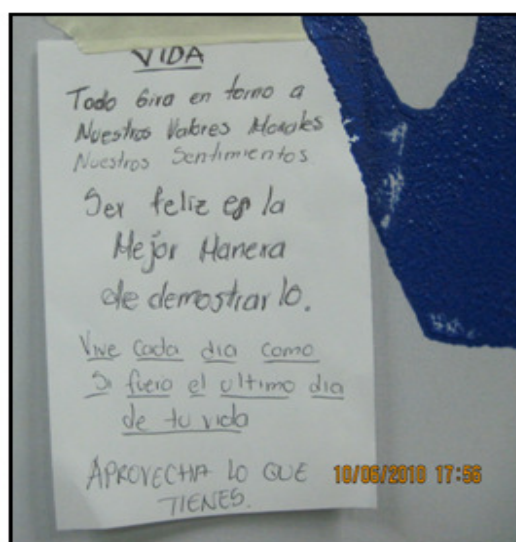 VIDA
Todo Gira en torno a
Nuestros Valores Morales
Nuestros Sentimientos
Ser feliz es la
Mejor Manera
de demostrarlo.
Vive Cada dia Como
Si fuera el ultimo dia
de tu vida
APROVECHA LO QUE
TIENES.
10/06/2010 17:56